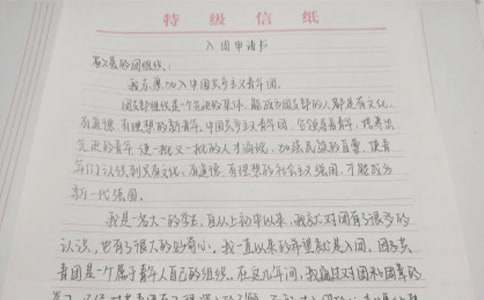 特级信纸
入团申请书
敬爱的团组织：
我志愿加入中国共产主义青年团。
团支部组织是一个先进的集体，能成为团支部的人都是有文化、
有道德、有理想的新青年。中国共产主义青年团，它领导着青年，培养出
先进的青年，使一批又一批的人才涌现，加强民族的力量，使青
年们认识到只有文化、有道德、有理想的社会主义强国，才能成为
新一代强国。
我是一名大一的学生，自从上初中以来，我就对团有了很多的
认识，也有了很大的好奇心。我一直以来的希望就是入团，因为共
青团是一个属于青年人自己的组织。在这几年间，我通过对团和团章的